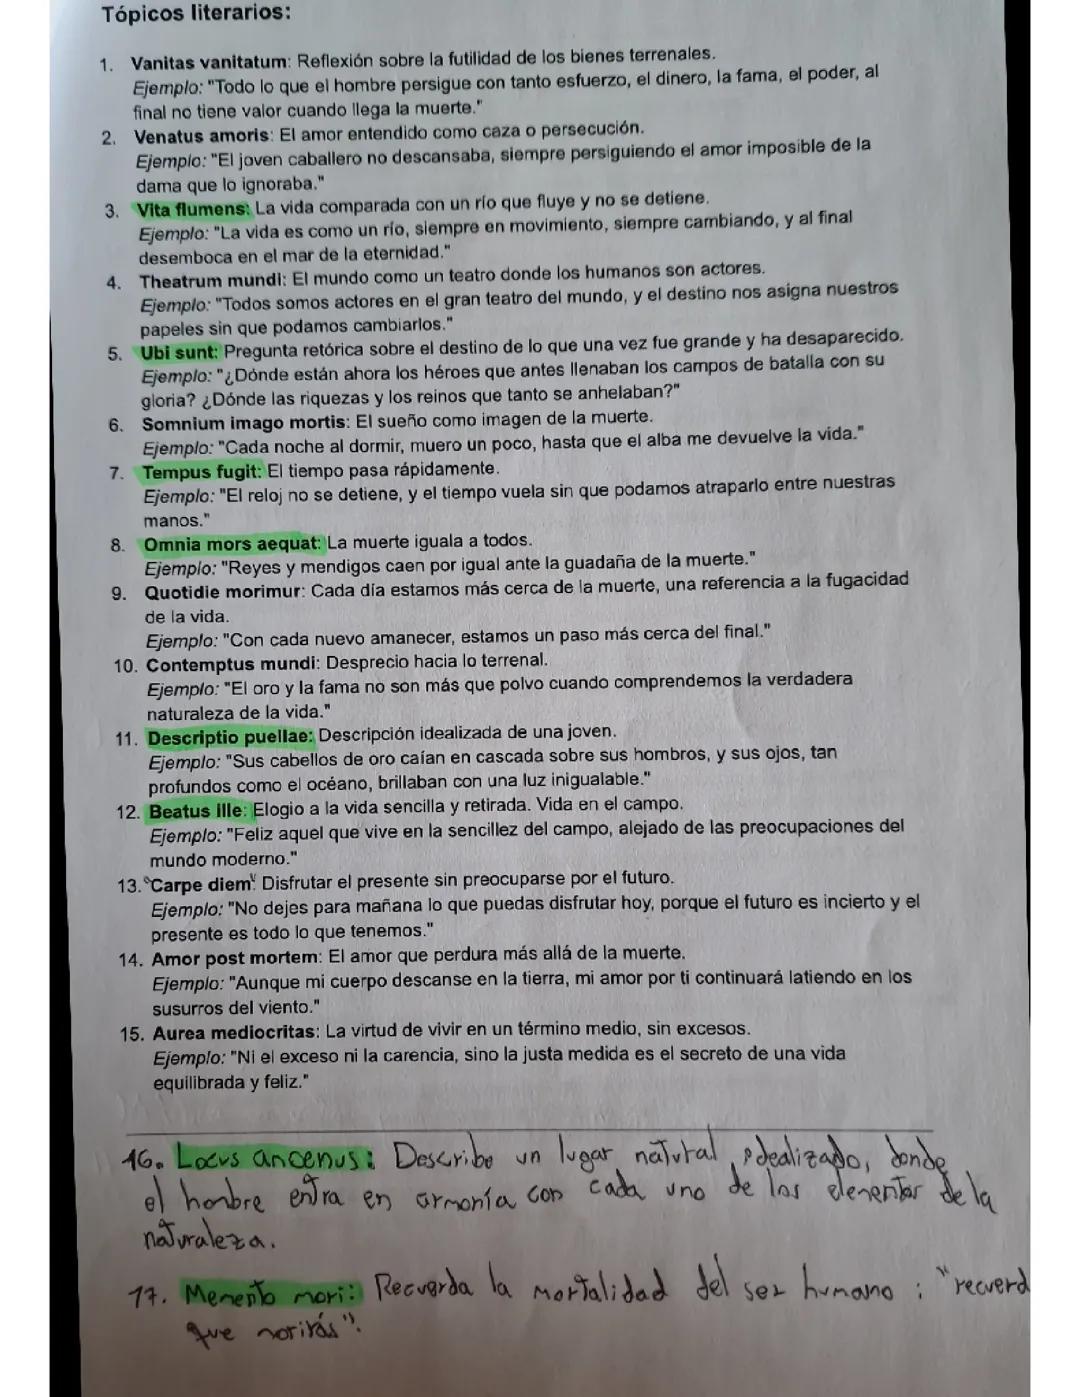 Tópicos literarios:
1. Vanitas vanitatum: Reflexión sobre la futilidad de los bienes terrenales.
Ejemplo: "Todo lo que el hombre persigue con tanto esfuerzo, el dinero, la fama, el poder, al
final no tiene valor cuando llega la muerte."
2. Venatus amoris: El amor entendido como caza o persecución.
Ejemplo: "El joven caballero no descansaba, siempre persiguiendo el amor imposible de la
dama que lo ignoraba."
3. Vita flumens: La vida comparada con un río que fluye y no se detiene.
Ejemplo: "La vida es como un río, siempre en movimiento, siempre cambiando, y al final
desemboca en el mar de la eternidad."
4. Theatrum mundi: El mundo como un teatro donde los humanos son actores.
Ejemplo: "Todos somos actores en el gran teatro del mundo, y el destino nos asigna nuestros
papeles sin que podamos cambiarlos."
5. Ubi sunt: Pregunta retórica sobre el destino de lo que una vez fue grande y ha desaparecido.
Ejemplo: "¿Dónde están ahora los héroes que antes llenaban los campos de batalla con su
gloria? ¿Dónde las riquezas y los reinos que tanto se anhelaban?"
6. Somnium imago mortis: El sueño como imagen de la muerte.
Ejemplo: "Cada noche al dormir, muero un poco, hasta que el alba me devuelve la vida."
7. Tempus fugit: El tiempo pasa rápidamente.
Ejemplo: "El reloj no se detiene, y el tiempo vuela sin que podamos atraparlo entre nuestras
manos."
8. Omnia mors aequat: La muerte iguala a todos.
Ejemplo: "Reyes y mendigos caen por igual ante la guadaña de la muerte."
9. Quotidie morimur: Cada día estamos más cerca de la muerte, una referencia a la fugacidad
de la vida.
Ejemplo: "Con cada nuevo amanecer, estamos un paso más cerca del final."
10. Contemptus mundi: Desprecio hacia lo terrenal.
Ejemplo: "El oro y la fama no son más que polvo cuando comprendemos la verdadera
naturaleza de la vida."
11. Descriptio puellae: Descripción idealizada de una joven.
Ejemplo: "Sus cabellos de oro caían en cascada sobre sus hombros, y sus ojos, tan
profundos como el océano, brillaban con una luz inigualable."
12. Beatus ille: Elogio a la vida sencilla y retirada. Vida en el campo.
Ejemplo: "Feliz aquel que vive en la sencillez del campo, alejado de las preocupaciones del
mundo moderno."
13. "Carpe diem": Disfrutar el presente sin preocuparse por el futuro.
Ejemplo: "No dejes para mañana lo que puedas disfrutar hoy, porque el futuro es incierto y el
presente es todo lo que tenemos."
14. Amor post mortem: El amor que perdura más allá de la muerte.
Ejemplo: "Aunque mi cuerpo descanse en la tierra, mi amor por ti continuará latiendo en los
susurros del viento."
15. Aurea mediocritas: La virtud de vivir en un término medio, sin excesos.
Ejemplo: "Ni el exceso ni la carencia, sino la justa medida es el secreto de una vida
equilibrada y feliz."
16. Locus ancenus: Describe un lugar natural idealizado, donde
el hombre entra en armonía con cada uno de los elementos de la
naturaleza.
17. Memento mori: Recuerda la mortalidad del ser humano; "recuerd
que morirás".